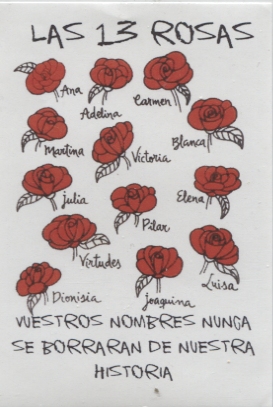 LAS 13 ROSAS
Ana
Adelina
Carmen
Martina
Victoria
Blanca
Julia
Pilar
Elena
Virtudes
Dionisia
Joaquina
Luisa
VUESTROS NOMBRES NUNCA
SE BORRARAN DE NUESTRA
HISTORIA